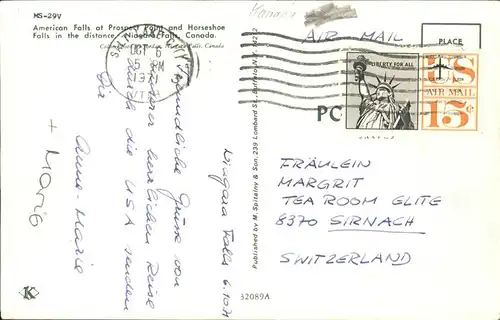 MS-29V
American Falls at Prospect Point and Horseshoe
Falls in the distance, Niagara Falls, Canada.
Niagara Falls 6.10.71
Freundliche Grüsse von
unserer herrlichen Reise
durch die USA senden
Dir
Anna-Marie
+ Mario
Published by M. Spitalny & Son, 239 Lombard St., Buffalo, N.Y. 14212
32089A
K
OCT 6
5 PM
AIR MAIL
PLACE
PC
LIBERTY FOR ALL
US
AIR MAIL
15¢
FRÄULEIN
MARGRIT
TEA ROOM ELITE
8370 SIRNACH
SWITZERLAND